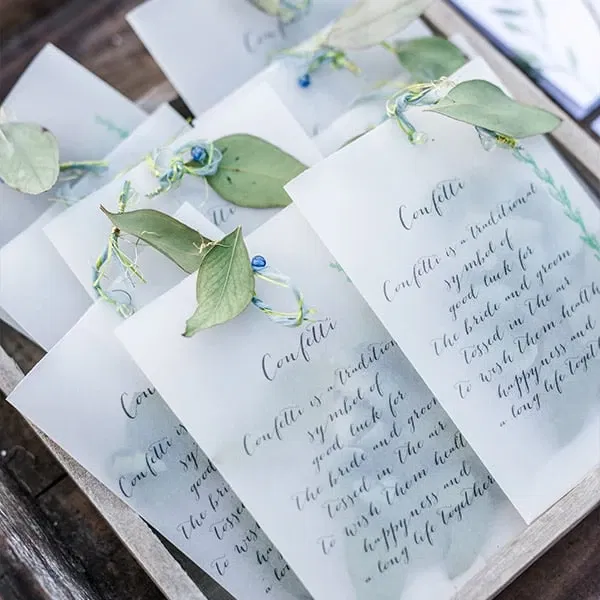 Confetti
Confetti is a traditional
symbol of
good luck for
the bride and groom
tossed in the air
to wish them health
happiness and
a long life together
Confetti
Confetti is a tradition
symbol of
good luck for
the bride and groo
tossed in the air
to wish them health
happiness and
a long life together
Con
Confetti
sym
good
the br
tossed
to wish